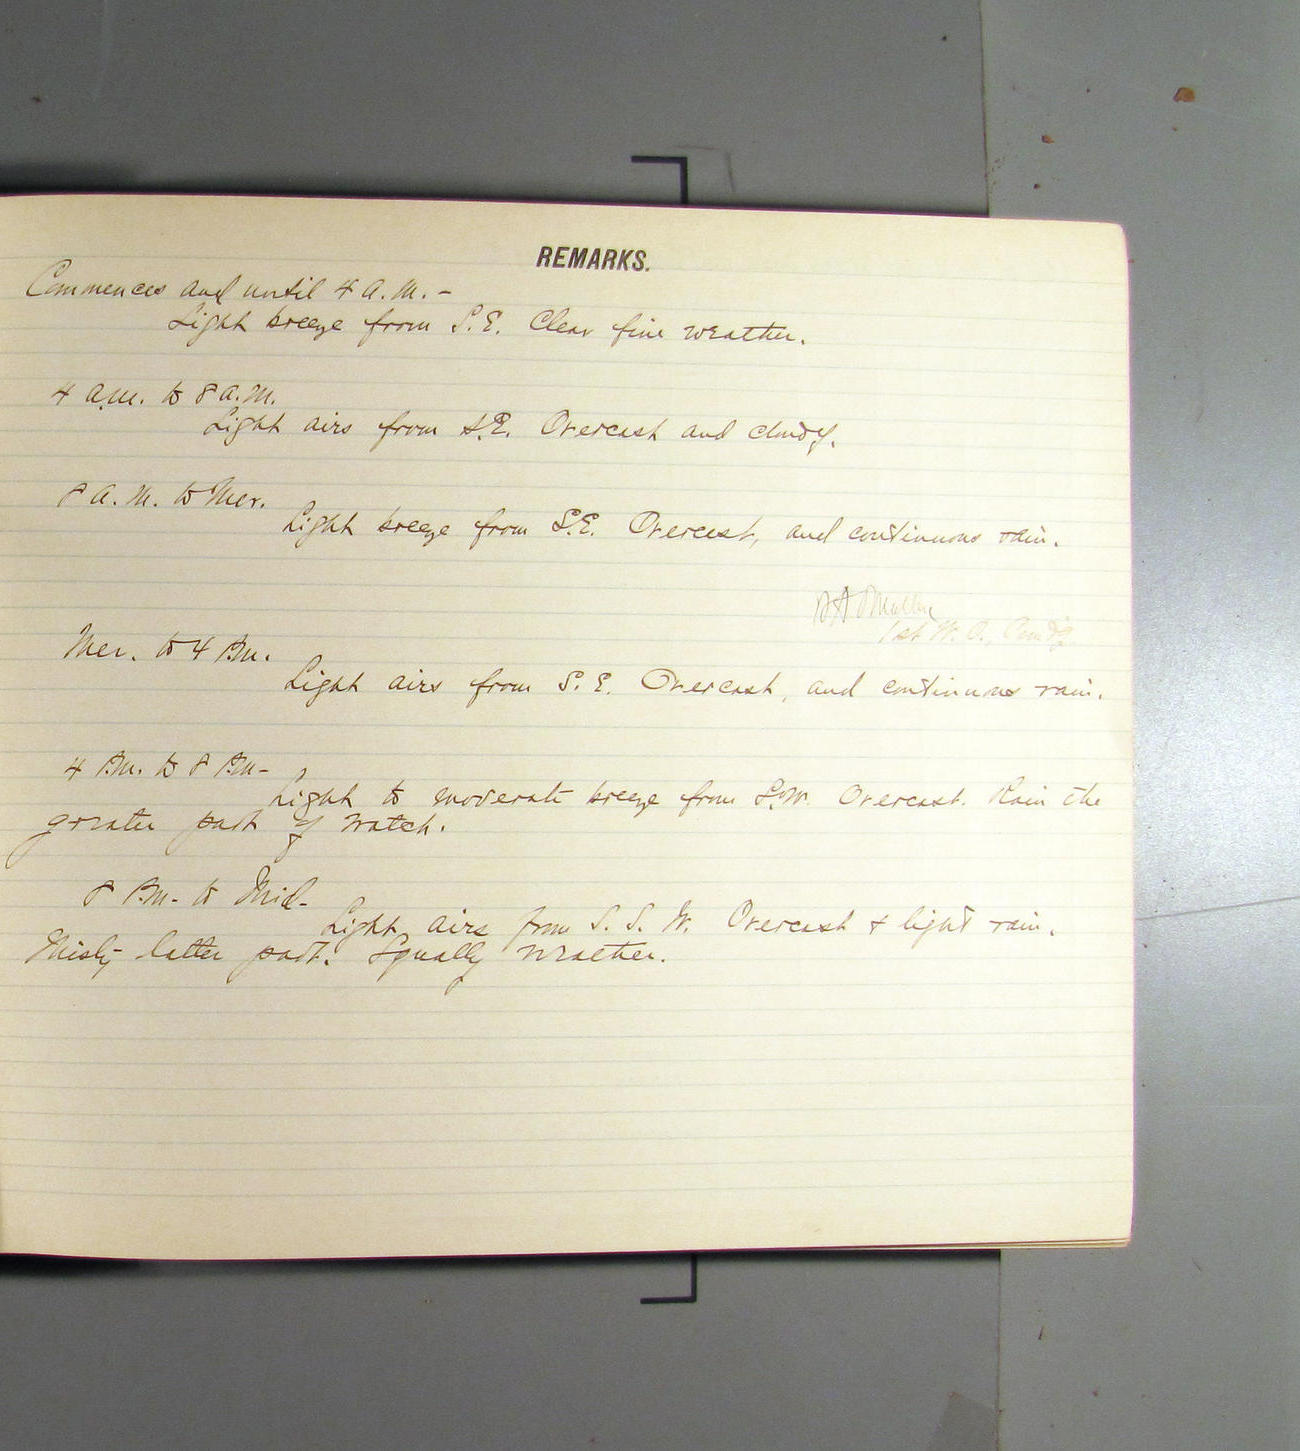 REMARKS.
Commences and until 4 A.M. -
Light breeze from S.E. Clear fine weather.
4 a.m. to 8 A.M.
Light airs from S.E. Overcast and cloudy.
8 A.M. to Mer.
Light breeze from S.E. Overcast, and continuous rain.
1st W. O.,
Mer. to 4 P.m.
Light airs from S.E. Overcast, and continuous rain.
4 P.m. to 8 P.m-
Light to moderate breeze from S.W. Overcast. Rain the
greater part of watch.
8 P.m- to Mid-
Light airs from S. S. W. Overcast + light rain.
Misty latter part. Squally weather.